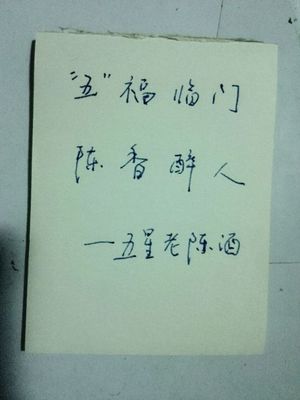 “五”福临门
陈香醉人
一五星老陈酒